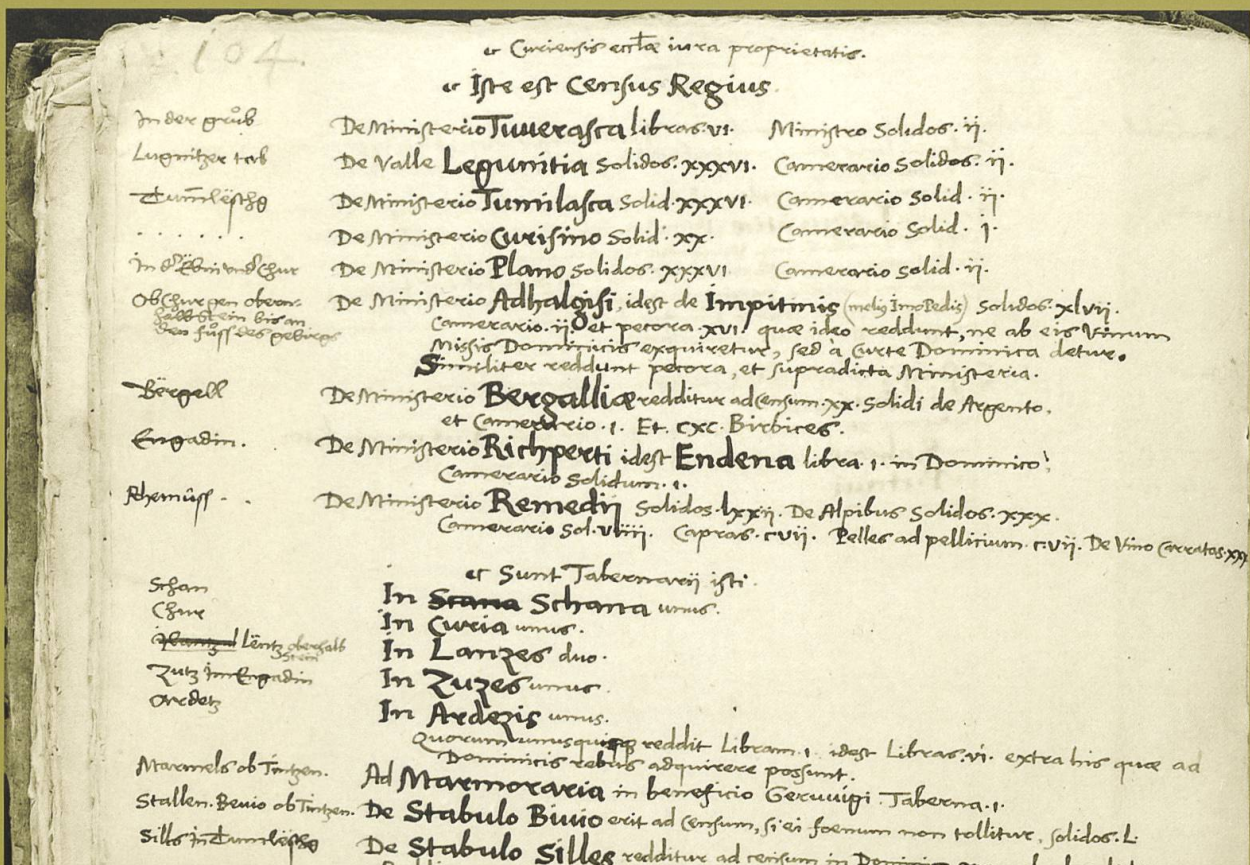 104.
Curiensis eccłæ iura proprietatis.
Iste est Census Regius
In der grůb De Ministerio Tuuerasca libras. vi. Ministro Solidos. ii.
Lugnitzer tal De Valle Legunitia Solidos. xxxvi. Camerario Solidos. ii.
Tumlëschg De Ministerio Tumilasca Solid. xxxvi. Camerario Solid. ii.
. . . . . . De Ministerio Curisino Solid. xx. Camerario Solid. i.
Chur De Ministerio Plano Solidos. xxxvi. Camerario Solid. ii.
Ob Chur gen obern- De Ministerio Adhalgisi, idest de Impitinis (meliꝰ ImoPedis) Solidos. xlvii.
halbstein bis an Camerario. ii. et pecora. xvi. quæ ideo reddunt, ne ab eis Vinum
den fůss des gebirgs Missis Dominicis exquiretur, sed à Curte Dominica detur.
Similiter reddunt pecora, et supradicta Ministeria.
Bërgell De Ministerio Bergalliæ redditur ad censum. xx. Solidi de Argento.
et Camerario. i. Et. cxc. Birbices.
Engadin. De Ministerio Richperti idest Endena libra. i. in Dominico.
Camerario Solidum. i.
Rhemüss . . De Ministerio Remedii Solidos. lxxii. De Alpibus Solidos. xxx.
Camerario Sol. viiii. Capras. cvii. Pelles ad pellicium. c.vii. De Vino Carratas. xxx
Sunt Tabernarii isti.
Schan In Scana Schana unus.
Chur In Curia unus.
Lëntz oberhalb In Lanzes duo.
Stein
Zutz im Engadin In Zuzes unus.
Ardetz In Ardezis unus.
Quorum unusquisqꝫ reddit Libram. i. idest Libras. vi. extra his quæ ad
Dominicis rebus adquirere possunt.
Marmels ob Tintzen. Ad Marmoraria in beneficio Geruuigi Taberna. i.
Stallen. Beuio ob Tintzen. De Stabulo Biuio erit ad censum, si ei foenum non tollitur, solidos. L.
Sills in Tumlëschg De Stabulo Silles redditur ad censum in